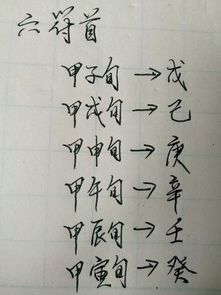 六符首
甲子旬→戊
甲戌旬→己
甲申旬→庚
甲午旬→辛
甲辰旬→壬
甲寅旬→癸